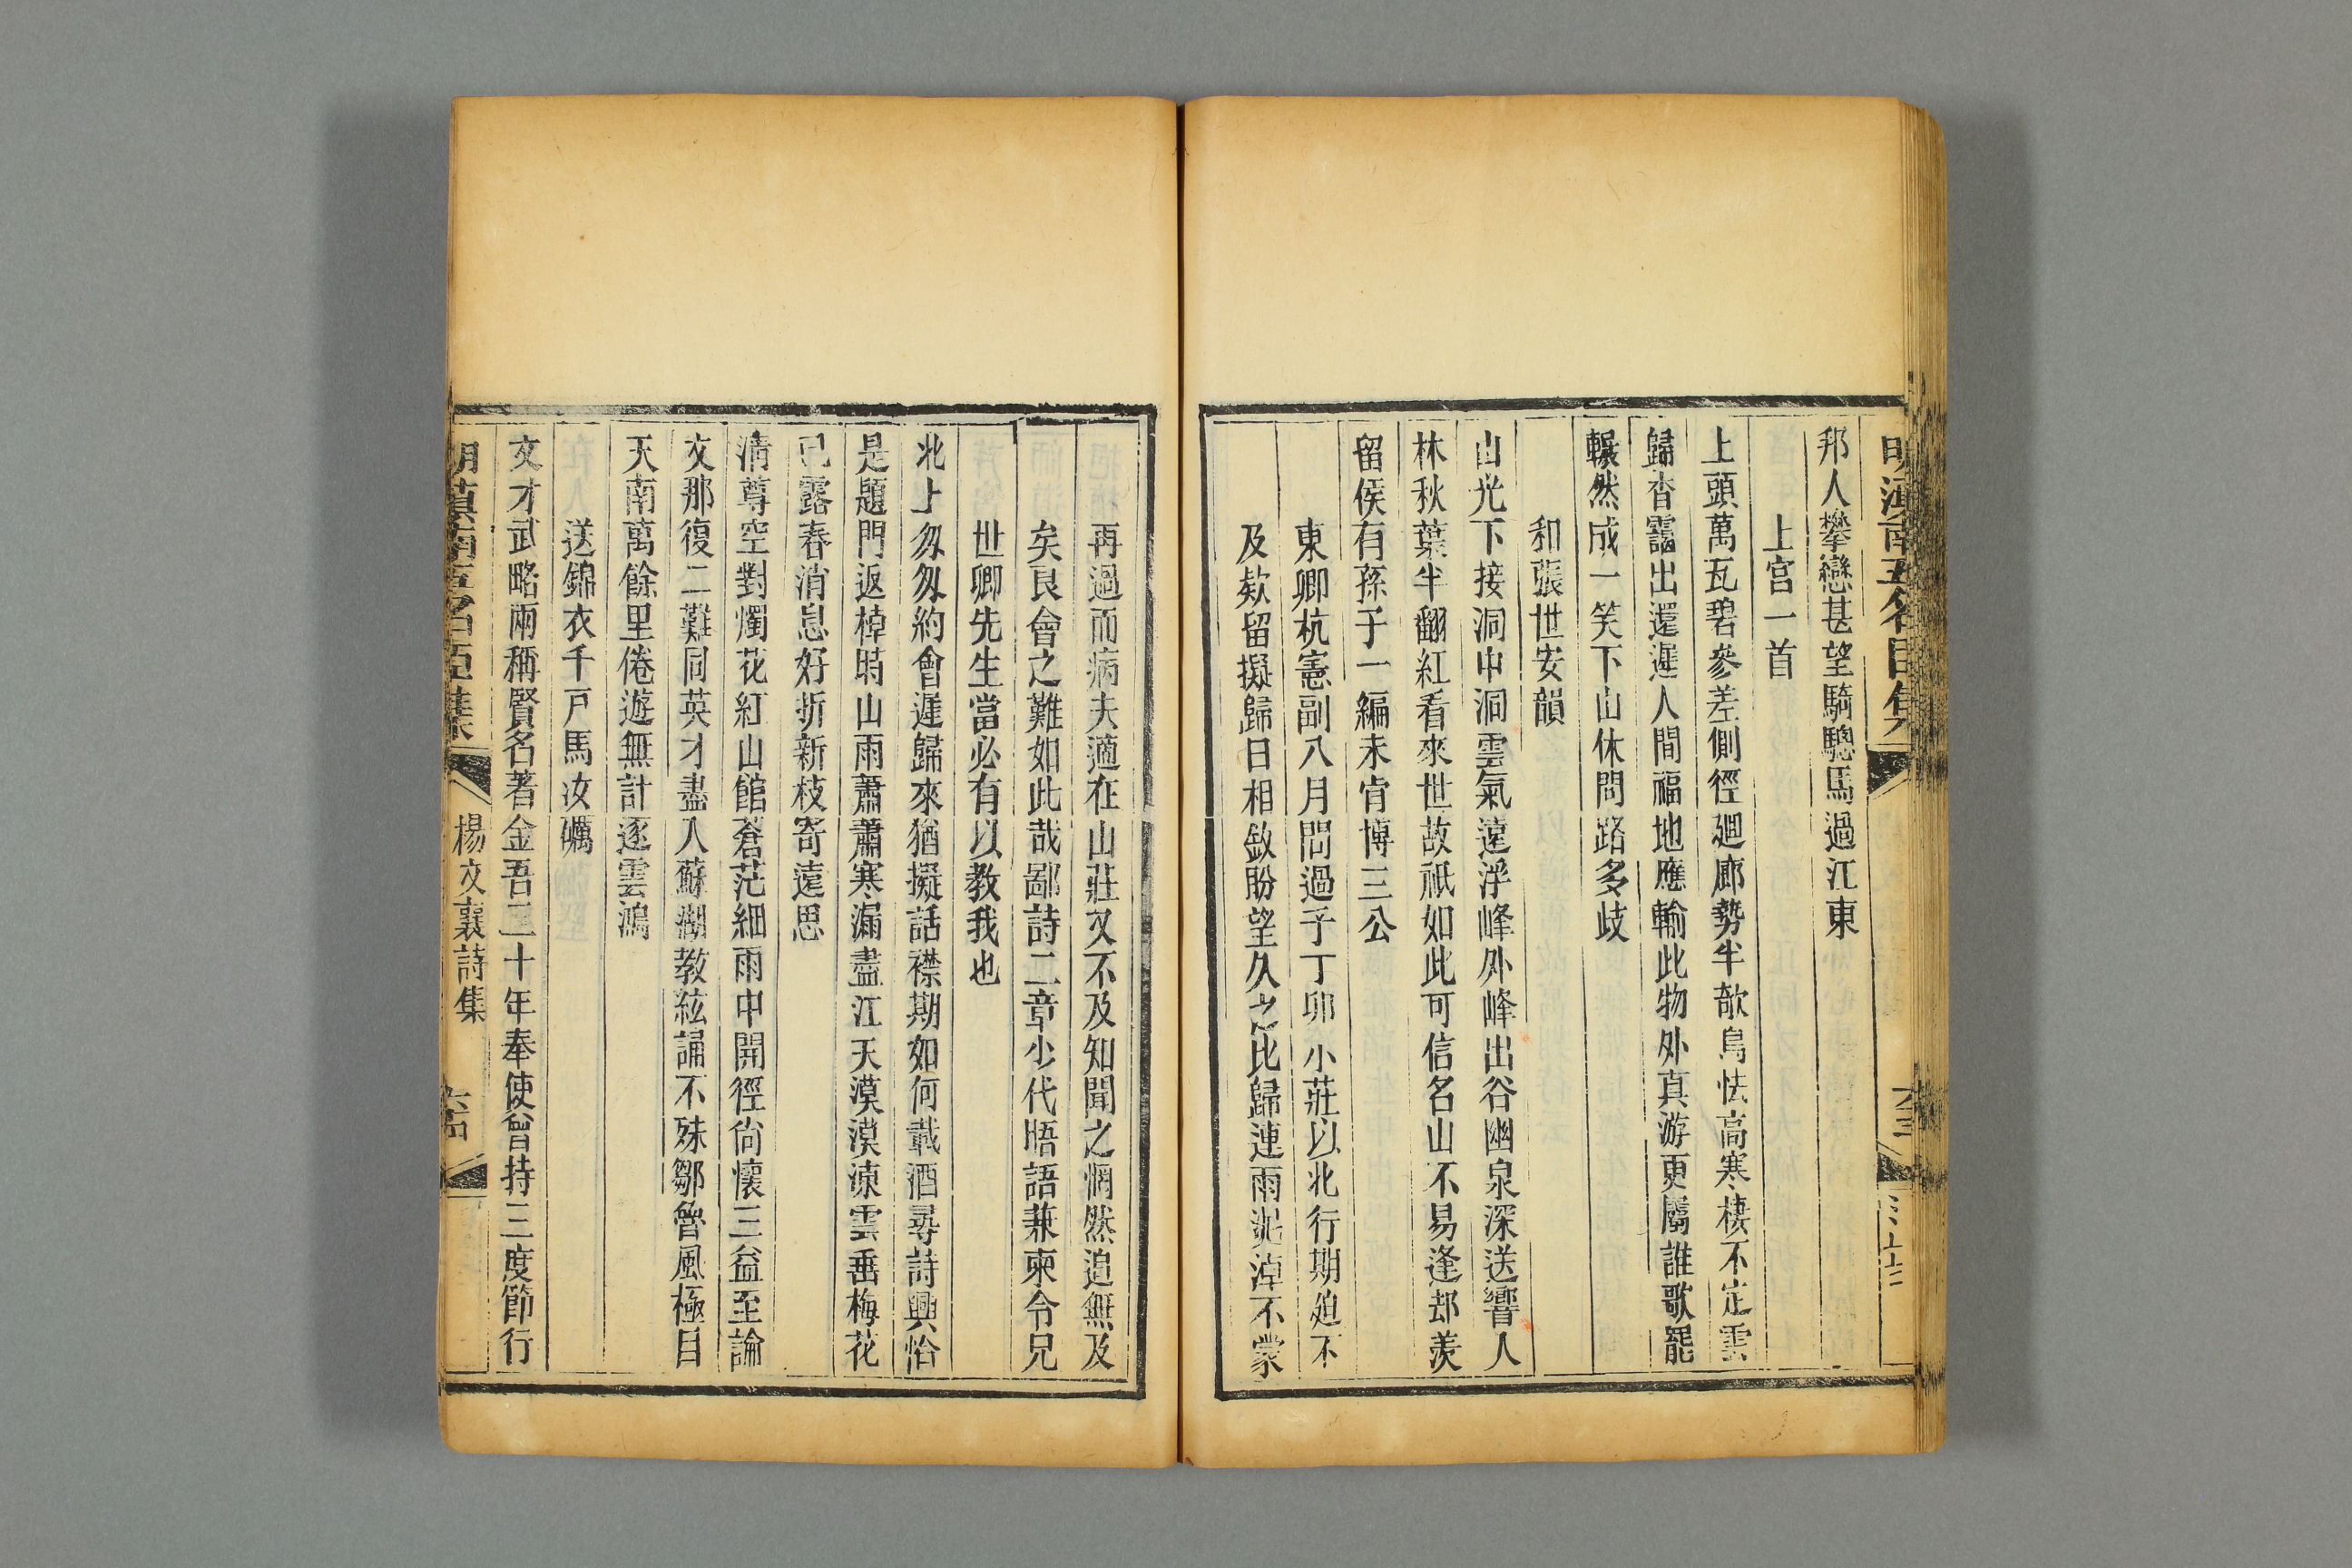 邦人攀戀甚望騎驄馬過江東
上宫一首
上頭萬瓦碧參差側徑廻廊勢半欹鳥怯高寒棲不定雲
歸杳靄出還遲人間福地應輸此物外真游更屬誰歌罷
冁然成一笑下山休問路多歧
和張世安韻
山光下接洞中洞雲氣遠浮峰外峰出谷幽泉深送響人
林秋葉半翻紅看來世故祇如此可信名山不易逢却羨
留侯有孫子一編未肯博三公
東卿杭憲副八月間過予丁卯小莊以北行期廹不
及欵留擬歸日相敘盼望久之比歸連雨泥淖不蒙
再過而病夫適在山莊又不及知聞之惘然追無及
矣良會之難如此哉鄙詩二章少代晤語兼柬令兄
世卿先生當必有以教我也
北上匆匆約會遲歸來猶擬話襟期如何載酒尋詩興恰
是題門返棹時山雨蕭蕭寒漏盡江天漠漠凍雲垂梅花
已露春消息好折新枝寄遠思
清尊空對燭花紅山館蒼茫細雨中開徑尚懷三益至論
交那復二難同英才盡入蘇湖教絃誦不殊鄒魯風極目
天南萬餘里倦遊無計逐雲鴻
送錦衣千戸馬汝礪
文才武略兩稱賢名著金吾二十年奉使曾持三度節行
明滇南五名臣集
楊文襄詩集